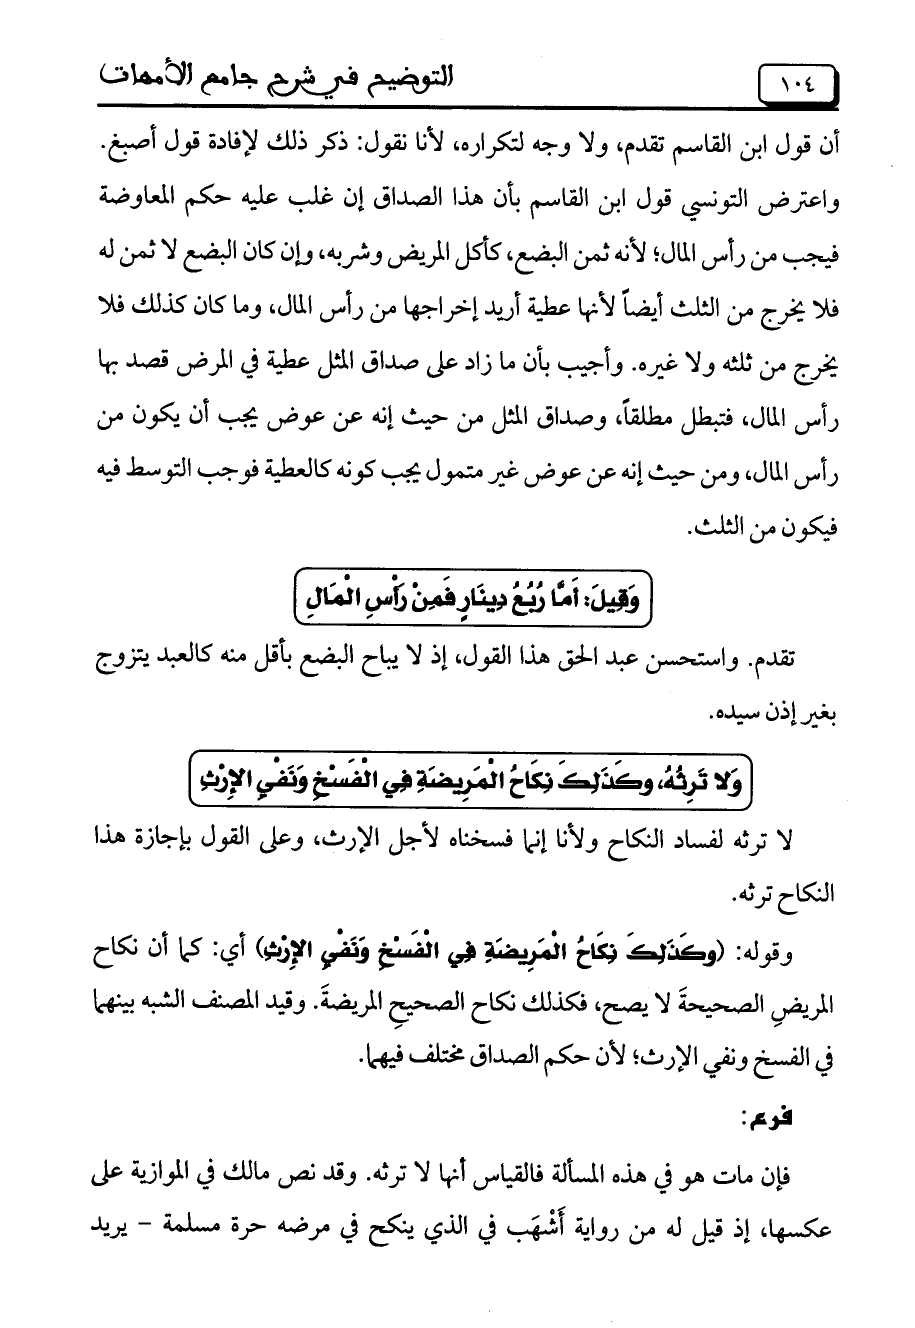 التوضيح في شرح جامع الأمهات
١٠٤
أن قول ابن القاسم تقدم، ولا وجه لتكراره، لأنا نقول: ذكر ذلك لإفادة قول أصبغ.
واعترض التونسي قول ابن القاسم بأن هذا الصداق إن غلب عليه حكم المعاوضة
فيجب من رأس المال؛ لأنه ثمن البضع، كأكل المريض وشربه، وإن كان البضع لا ثمن له
فلا يخرج من الثلث أيضاً لأنها عطية أريد إخراجها من رأس المال، وما كان كذلك فلا
يخرج من ثلثه ولا غيره. وأجيب بأن ما زاد على صداق المثل عطية في المرض قصد بها
رأس المال، فتبطل مطلقاً، وصداق المثل من حيث إنه عن عوض يجب أن يكون من
رأس المال، ومن حيث إنه عن عوض غير متمول يجب كونه كالعطية فوجب التوسط فيه
فيكون من الثلث.
وَقِيلَ: أَمَّا رُبُعُ دِينَارٍ فَمِنْ رَأْسِ الْمَالِ
تقدم. واستحسن عبد الحق هذا القول، إذ لا يباح البضع بأقل منه كالعبد يتزوج
بغير إذن سيده.
وَلا تَرِثُهُ، وكَذَلِكَ نِكَاحُ الْمَرِيضَةِ فِي الْفَسْخِ وَنَفْيِ الإِرْثِ
لا ترثه لفساد النكاح ولأنا إنما فسخناه لأجل الإرث، وعلى القول بإجازة هذا
النكاح ترثه.
وقوله: (وكَذَلِكَ نِكَاحُ الْمَرِيضَةِ فِي الْفَسْخِ وَنَفْيِ الإِرْثِ) أي: كما أن نكاح
المريضِ الصحيحةَ لا يصح، فكذلك نكاح الصحيحِ المريضةَ. وقيد المصنف الشبه بينهما
في الفسخ ونفي الإرث؛ لأن حكم الصداق مختلف فيهما.
فرع:
فإن مات هو في هذه المسألة فالقياس أنها لا ترثه. وقد نص مالك في الموازية على
عكسها، إذ قيل له من رواية أَشْهَب في الذي ينكح في مرضه حرة مسلمة – يريد